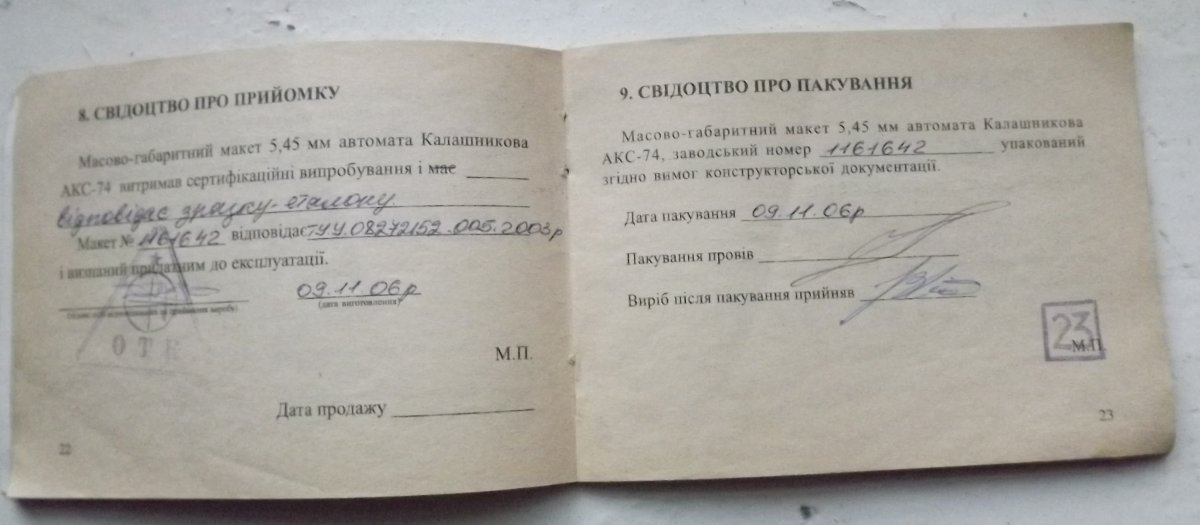 8. СВІДОЦТВО ПРО ПРИЙОМКУ
Масово-габаритний макет 5,45 мм автомата Калашникова
АКС-74 витримав сертифікаційні випробування і має
відповідає зразку-еталону
Макет № 1161642 відповідає ТУУ.08272152.005.2003р
і визнаний придатним до експлуатації.
09.11.06р
(дата виготовлення)
ОТК
М.П.
Дата продажу
22
9. СВІДОЦТВО ПРО ПАКУВАННЯ
Масово-габаритний макет 5,45 мм автомата Калашникова
АКС-74, заводський номер 1161642 упакований
згідно вимог конструкторської документації.
Дата пакування 09.11.06р
Пакування провів
Виріб після пакування прийняв
23
М.П.
23